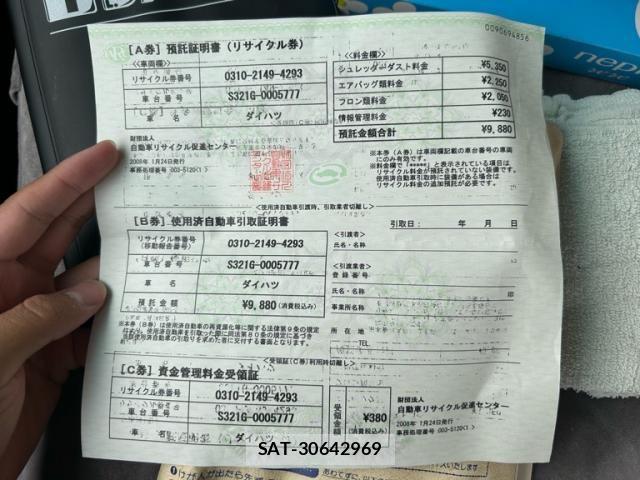 0090694856
[A券] 預託証明書(リサイクル券)
<車両欄>
リサイクル券番号 0310-2149-4293
車台番号 S321G-0005777
車名 ダイハツ
<料金欄>
シュレッダーダスト料金 ¥5,350
エアバッグ類料金 ¥2,250
フロン類料金 ¥2,050
情報管理料金 ¥230
預託金額合計 ¥9,880
財団法人
自動車リサイクル促進センター
2008年 1月24日発行
事務処理番号 003-5120(1)
※本券(A券)は車両欄記載の車台番号の車両
にのみ有効です。
※料金欄で「*****」と表示されている項目は
リサイクル料金が預託されていない装備です。
使用済自動車引取時に装備がある場合は
リサイクル料金の追加預託が必要です。
<使用済自動車引渡時、引取業者切離し>
[B券] 使用済自動車引取証明書
引取日: 年 月 日
リサイクル券番号
(移動報告番号) 0310-2149-4293
車台番号 S321G-0005777
車名 ダイハツ
預託金額 ¥9,880 (消費税込み)
<引渡者>
氏名・名称
<引取業者>
登録番号
氏名・名称 印
事業所名称
所在地
TEL
<受領証(C券)利用時切離し>
[C券] 資金管理料金受領証
リサイクル券番号 0310-2149-4293
車台番号 S321G-0005777
車名 ダイハツ
受領金額 ¥380
(消費税込み)
財団法人
自動車リサイクル促進センター
2008年 1月24日発行
事務処理番号 003-5120(1)
SAT-30642969
nep